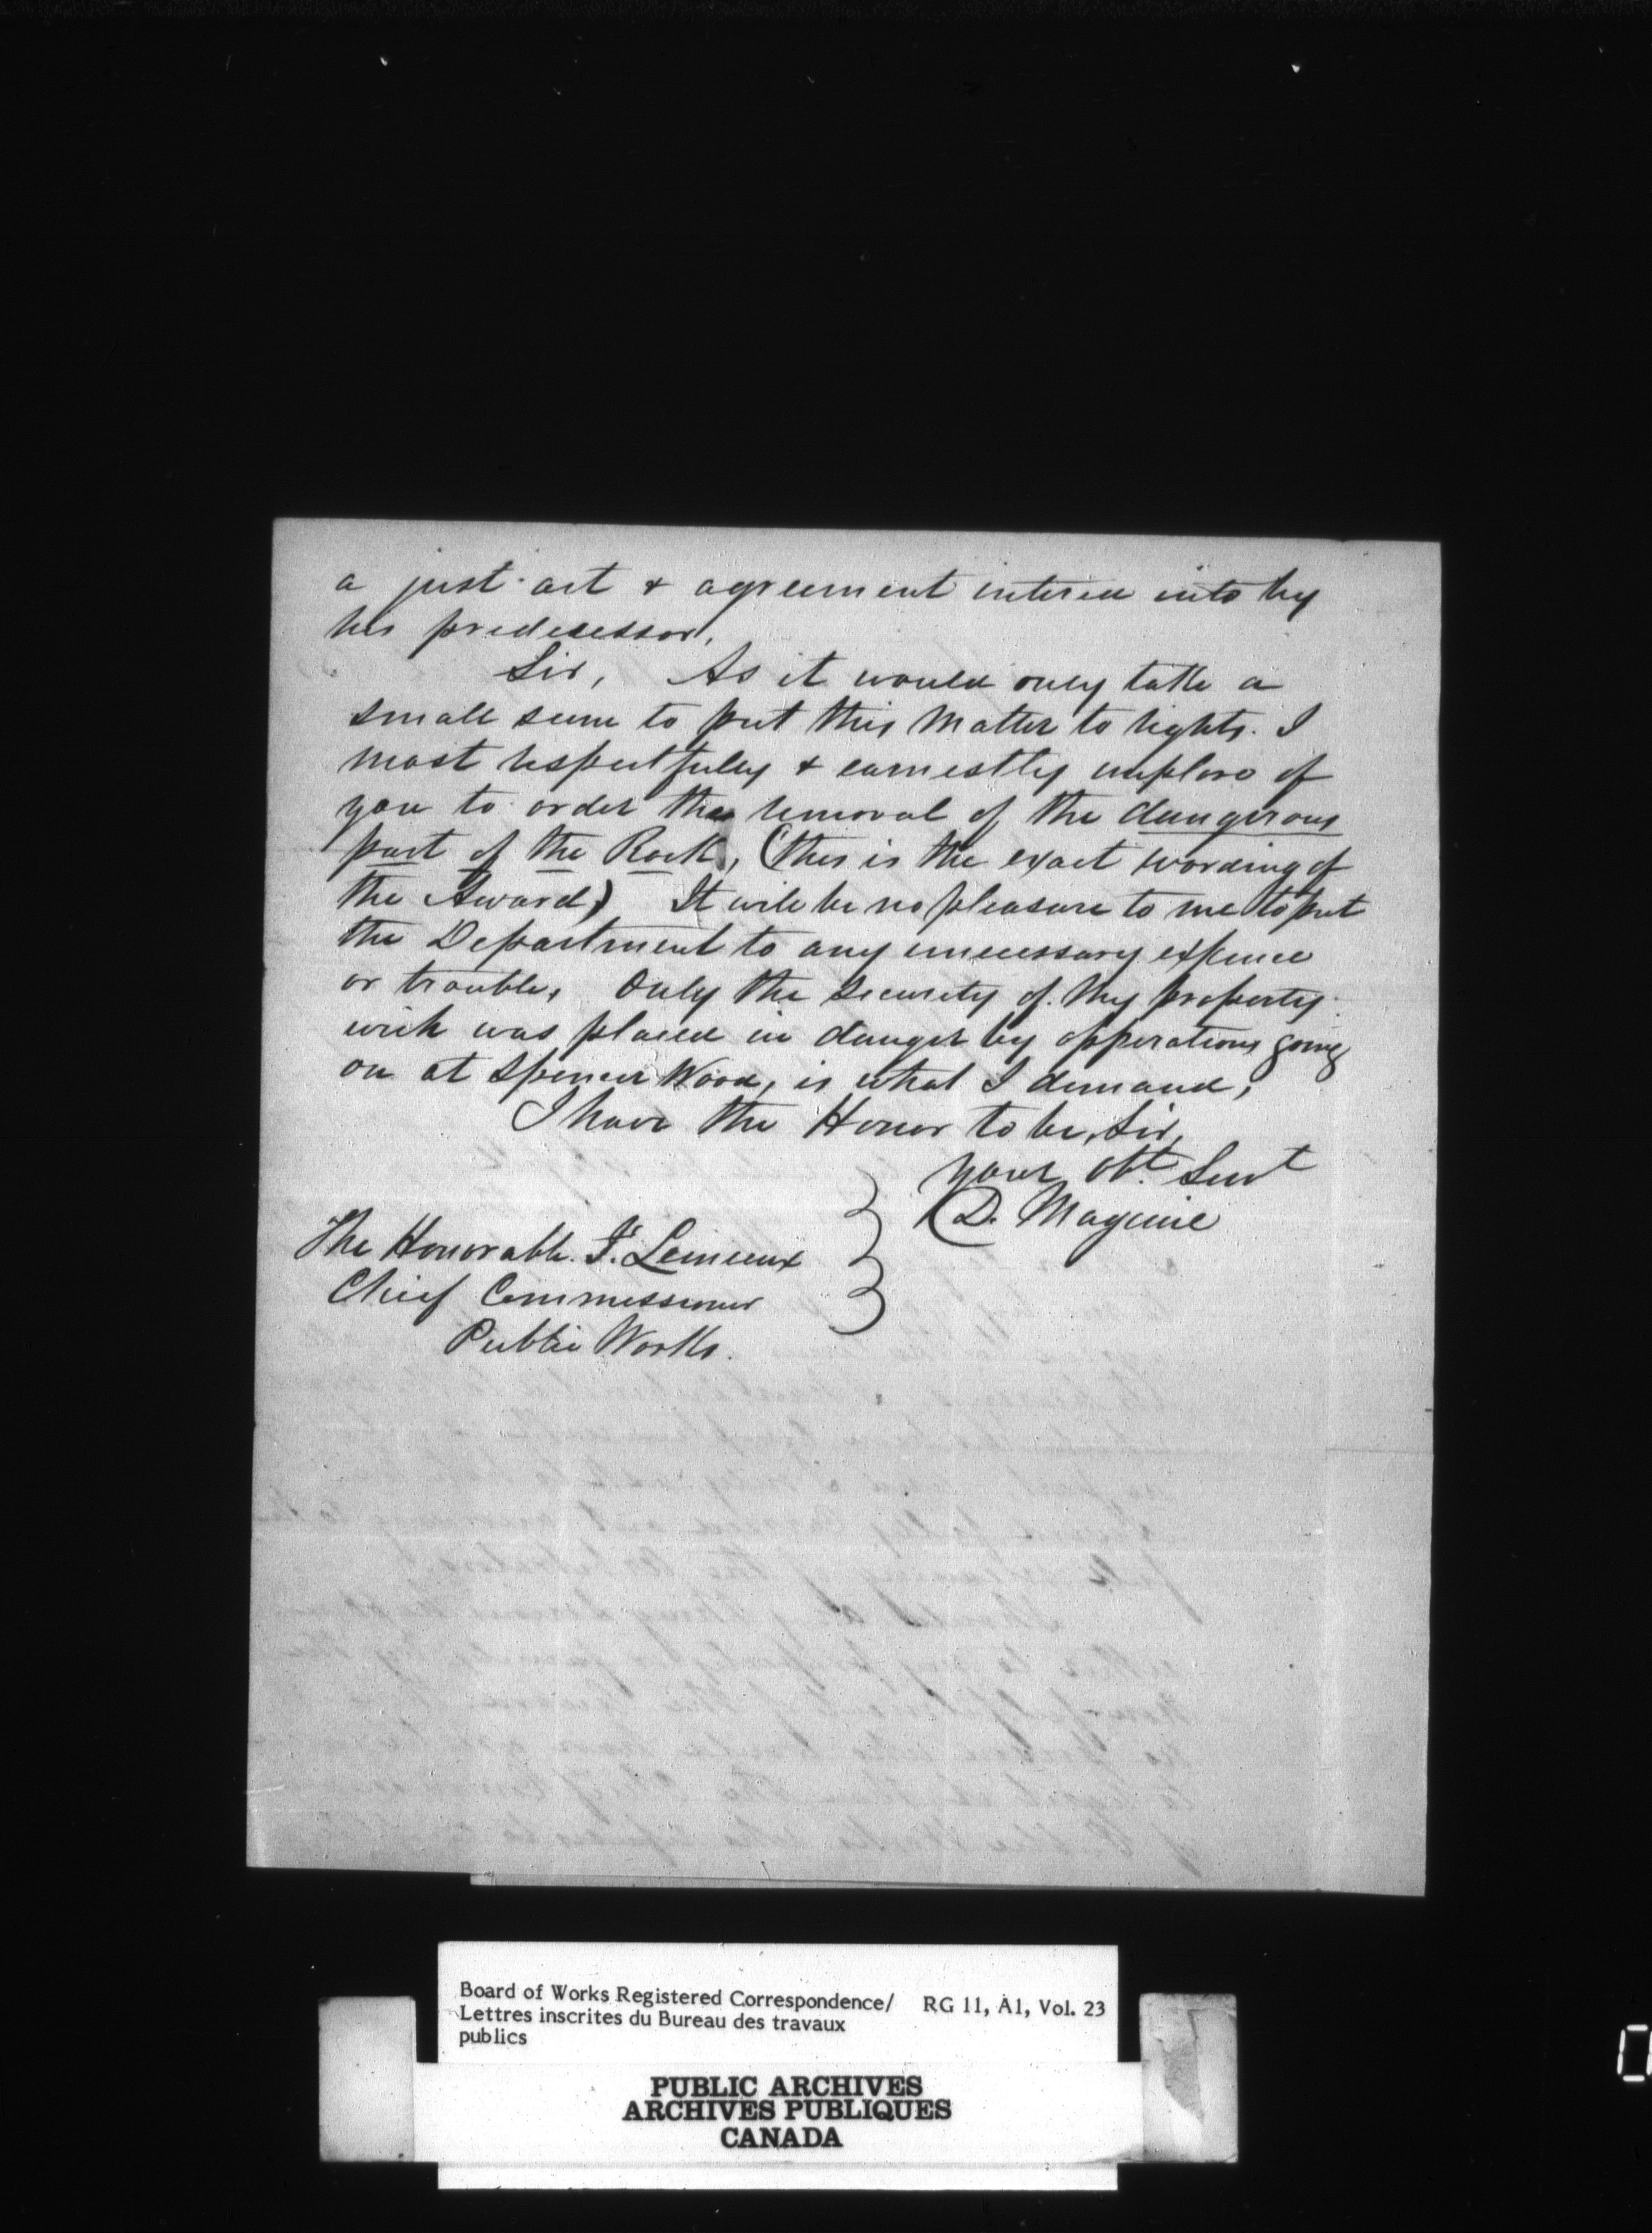 a just act & agreement entered into by
his predecessor.
Sir, As it would only take a
small sum to put this Matter to rights. I
most respectfully & earnestly implore of
you to order the removal of the dangerous
part of the Rock, (this is the exact wording of
the Award) It will be no pleasure to me to put
the Department to any unnecessary expence
or trouble, Only the Security of My property
wich was placed in danger by opperations going
on at Spencer Wood, is what I demand,
I have the Honor to be, Sir,
your Obt. Servt
D. Maguire
The Honorable. F. Lemieux
Chief Commissioner
Public Works.
Board of Works Registered Correspondence/ RG 11, A1, Vol. 23
Lettres inscrites du Bureau des travaux
publics
PUBLIC ARCHIVES
ARCHIVES PUBLIQUES
CANADA